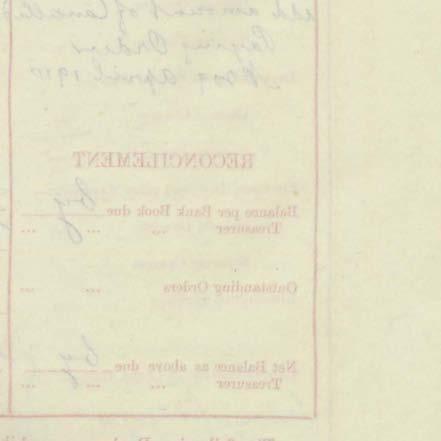 add amount of
Paying Orders
April 1910
RECONCILEMENT
Balance per Bank Book due by
Treasurer ... ... ...
Outstanding Orders ... ...
Net Balance as above due by
Treasurer ... ... ...